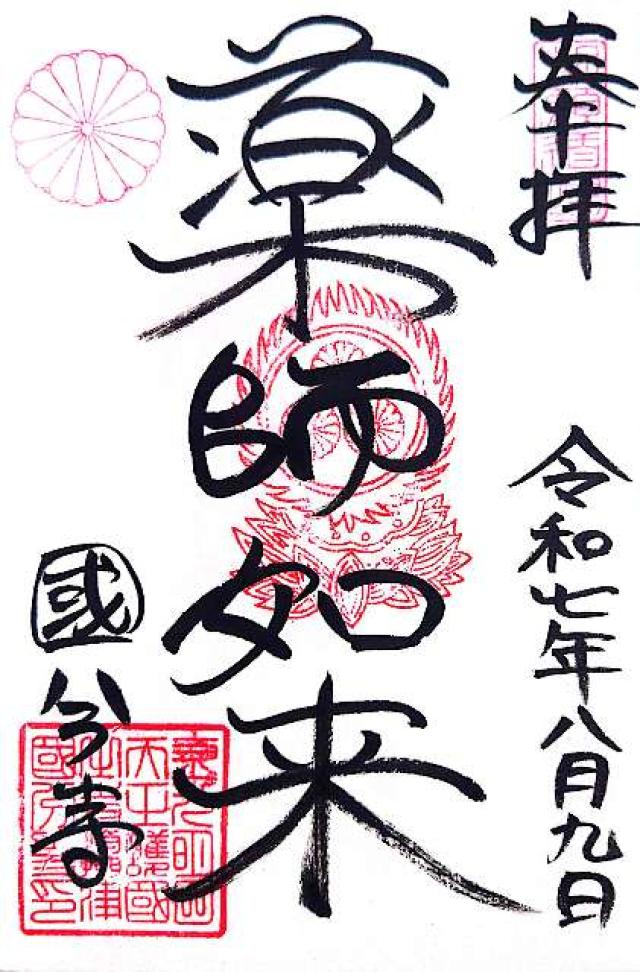 奉拝
令和七年八月九日
薬師如来
國分寺